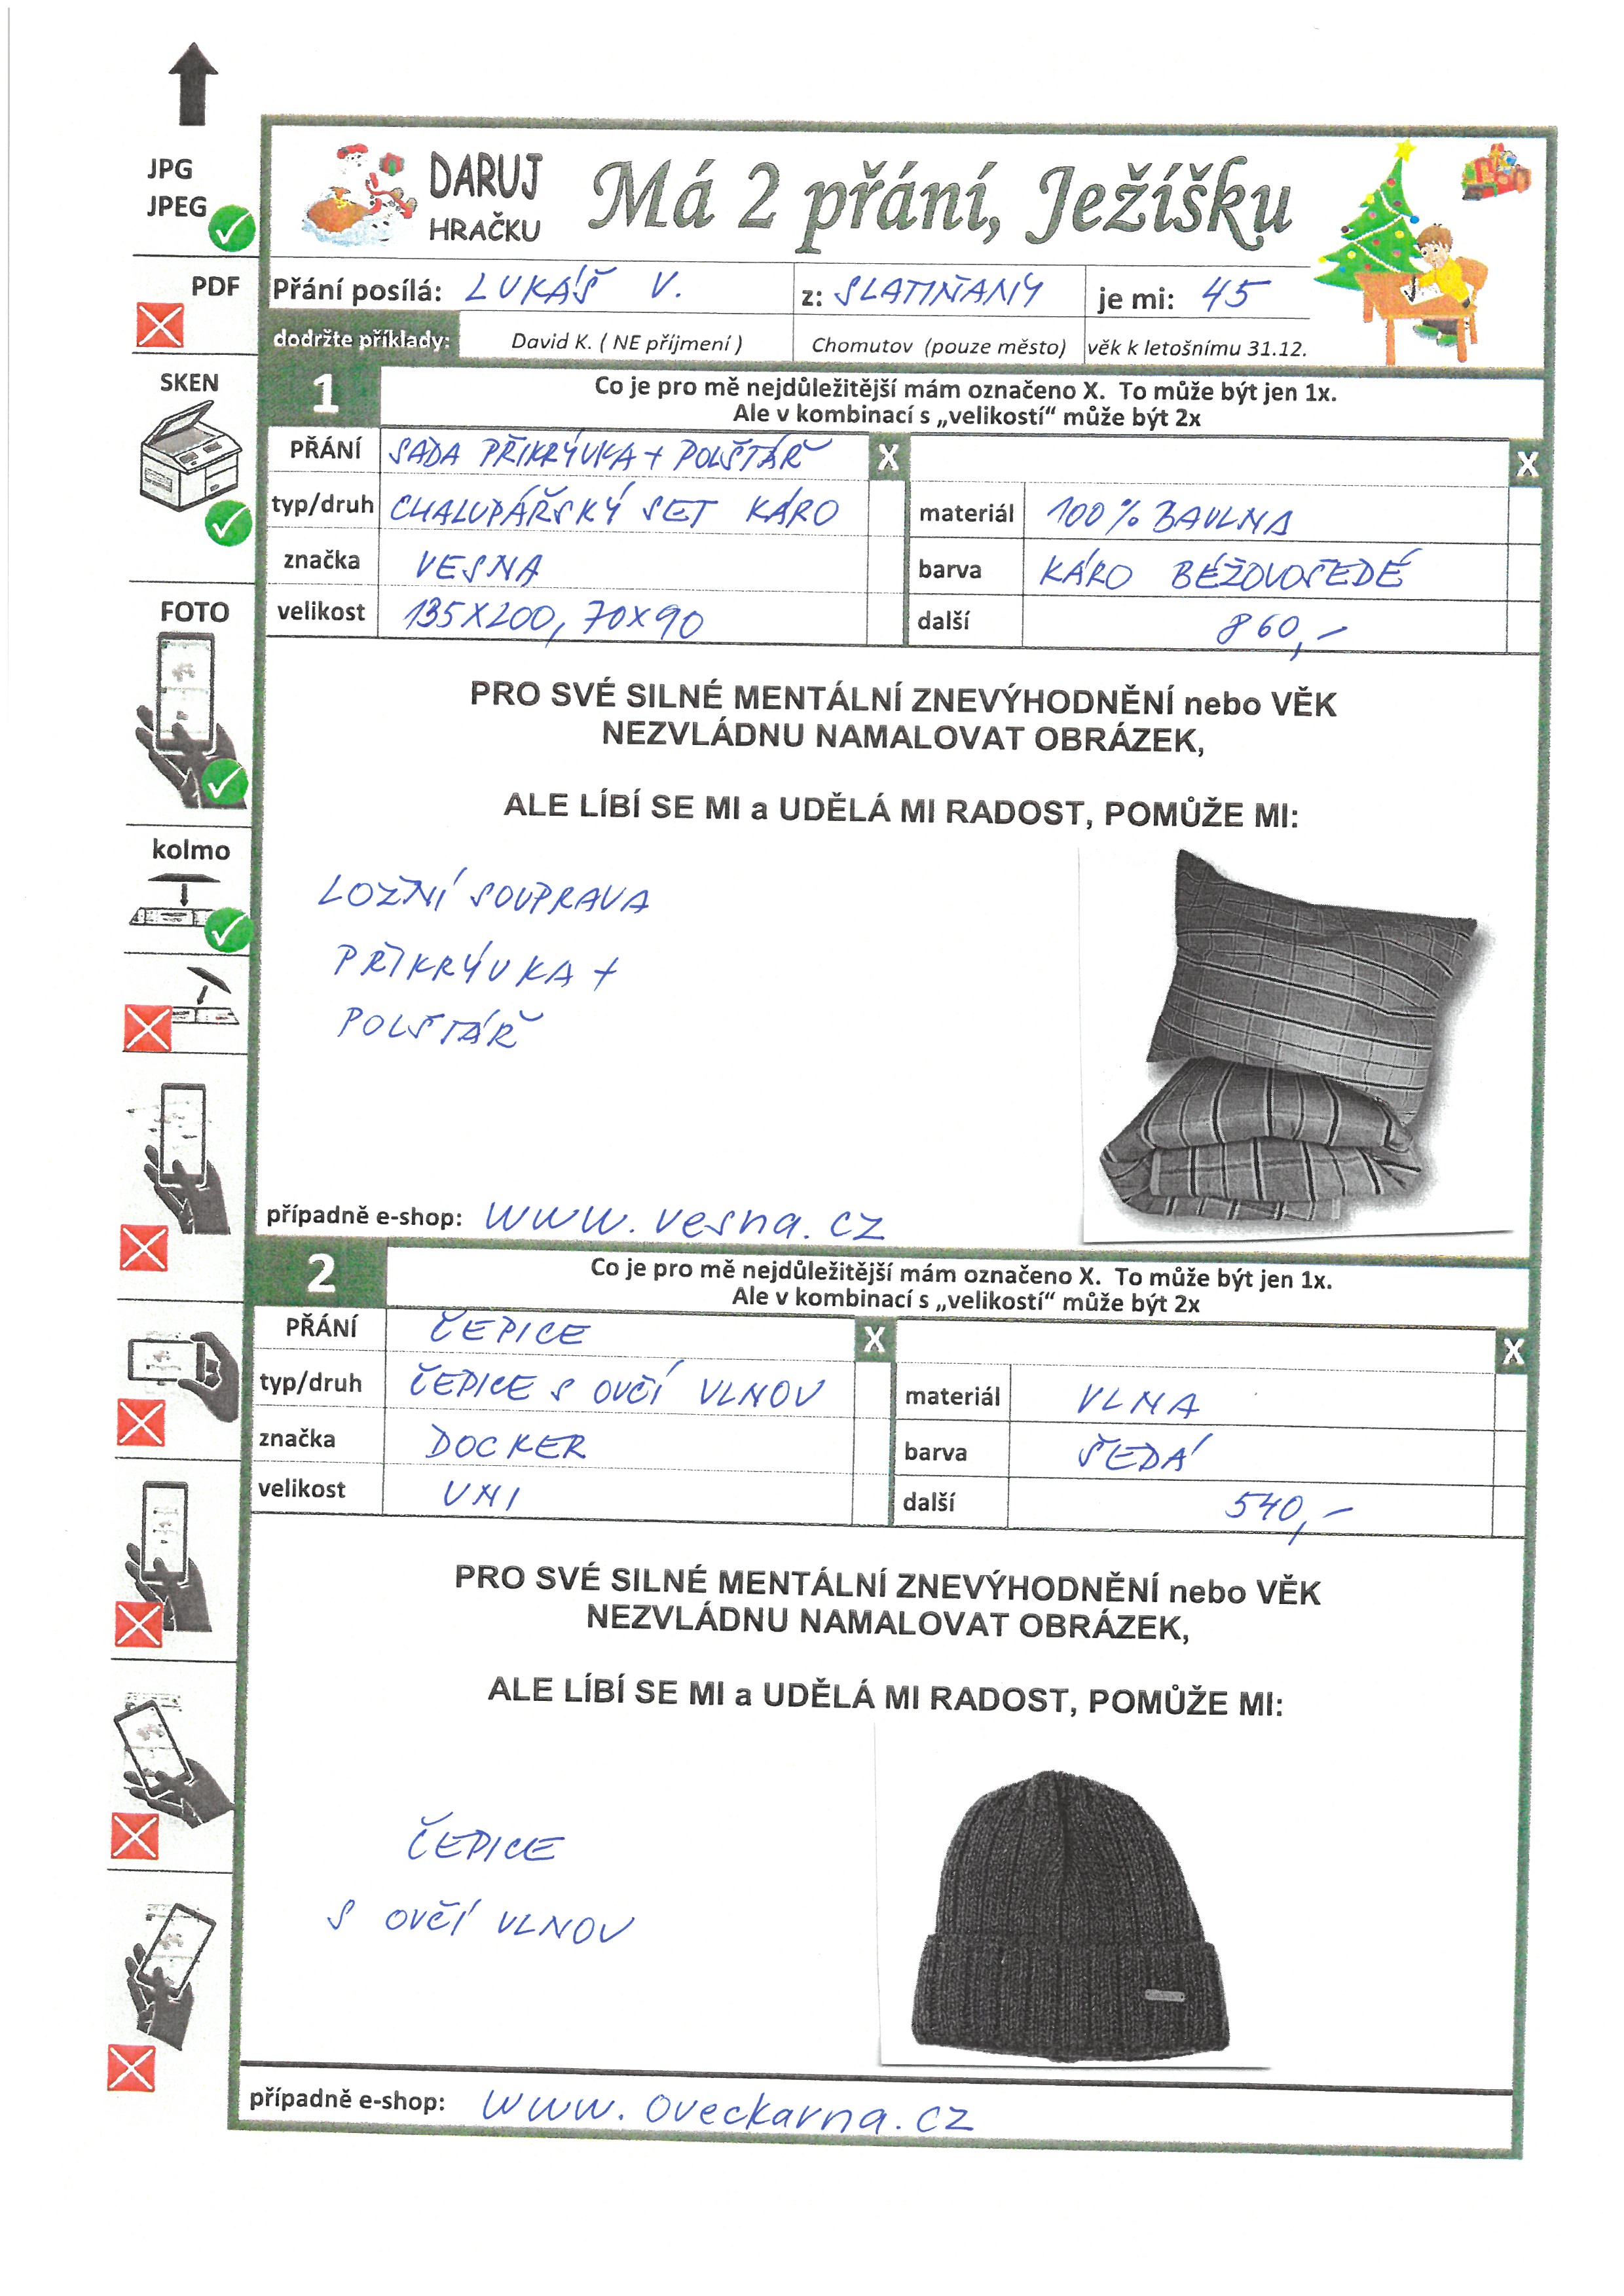 JPG
JPEG
PDF
SKEN
FOTO
kolmo
DARUJ
HRAČKU
Má 2 přání, Ježíšku
Přání posílá: LUKÁŠ V. z: SLATIŇANY je mi: 45
dodržte příklady: David K. ( NE příjmení ) Chomutov (pouze město) věk k letošnímu 31.12.
1
Co je pro mě nejdůležitější mám označeno X. To může být jen 1x.
Ale v kombinací s „velikostí“ může být 2x
PŘÁNÍ SADA PŘIKRÝVKA + POLŠTÁŘ X X
typ/druh CHALUPÁŘSKÝ SET KÁRO materiál 100% BAVLNA
značka VESNA barva KÁRO BÉŽOVOŠEDÉ
velikost 135X200, 70X90 další 860,-
PRO SVÉ SILNÉ MENTÁLNÍ ZNEVÝHODNĚNÍ nebo VĚK
NEZVLÁDNU NAMALOVAT OBRÁZEK,
ALE LÍBÍ SE MI a UDĚLÁ MI RADOST, POMŮŽE MI:
LOŽNÍ SOUPRAVA
PŘIKRÝVKA +
POLŠTÁŘ
případně e-shop: www.vesna.cz
2
Co je pro mě nejdůležitější mám označeno X. To může být jen 1x.
Ale v kombinací s „velikostí“ může být 2x
PŘÁNÍ ČEPICE X X
typ/druh ČEPICE S OVČÍ VLNOU materiál VLNA
značka DOCKER barva ŠEDÁ
velikost UNI další 540,-
PRO SVÉ SILNÉ MENTÁLNÍ ZNEVÝHODNĚNÍ nebo VĚK
NEZVLÁDNU NAMALOVAT OBRÁZEK,
ALE LÍBÍ SE MI a UDĚLÁ MI RADOST, POMŮŽE MI:
ČEPICE
S OVČÍ VLNOU
případně e-shop: www.oveckarna.cz